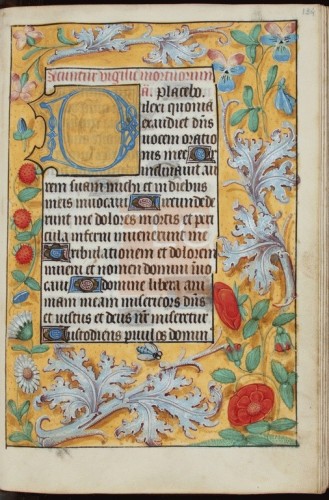 Secuntur vigilie mortuorum
a. Placebo.
Dilexi quoniā
exaudiet dn̄s
vocem oratio
nis mee
Inclinauit au
rem suam michi et in diebus
meis inuocaui Circundede
runt me dolores mortis et peri
cula inferni inuenerunt me
Tribulationem et dolorem
inueni et nomen domini īuo
caui O domine libera ani
mam meam misericors dn̄s
et iustus et deus nr̄ miseretur
Custodiens paruulos domin